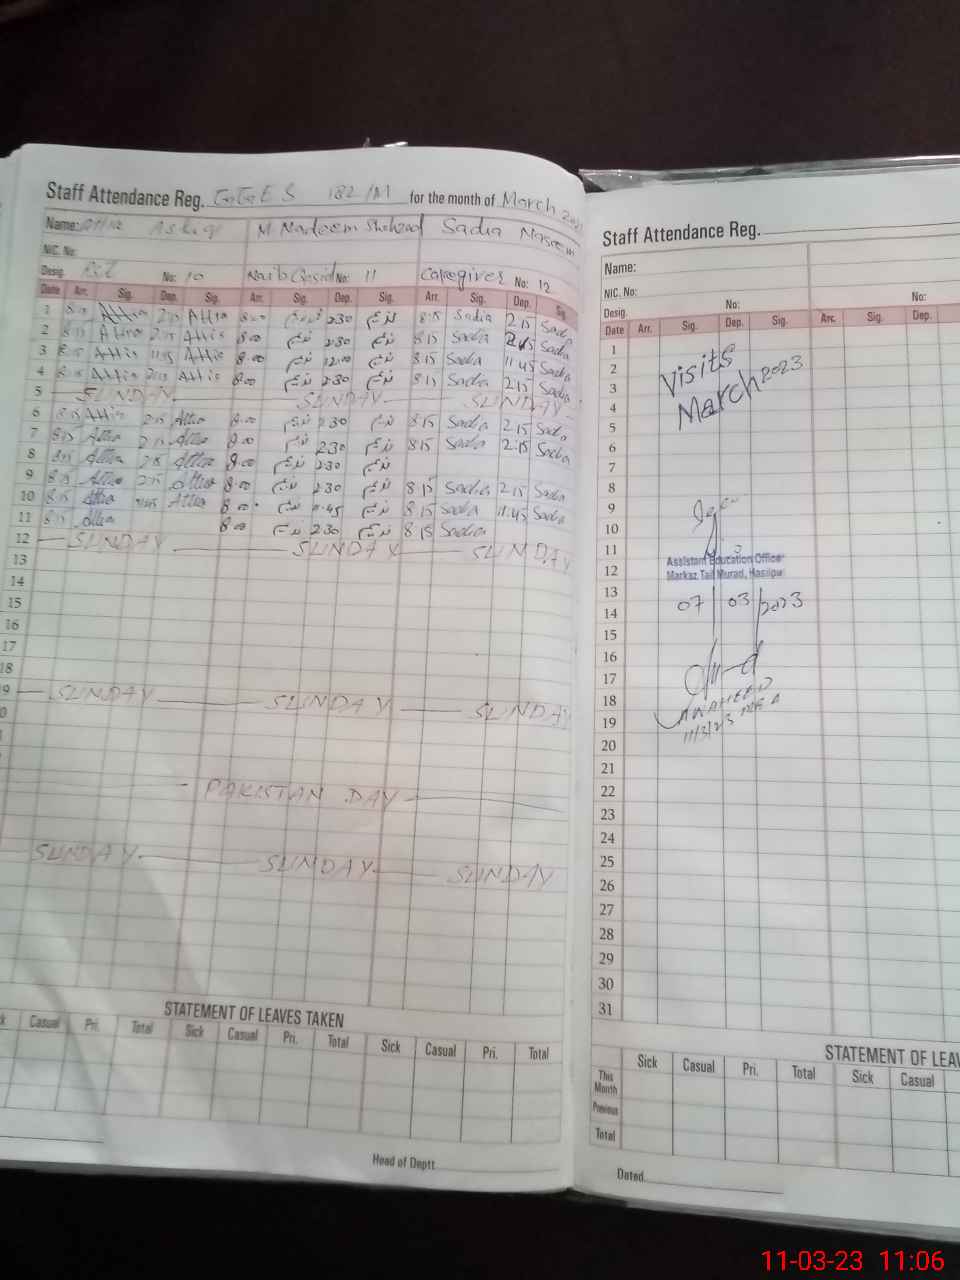 Staff Attendance Reg. GGES 182/M for the month of March 2023
Name: Attia Ashaq M. Nadeem Shahzad Sadia Naseem
NIC. No:
Desig. No: 10 Naib Qasid No: 11 Caregiver No: 12
Date Arr. Sig. Dep. Sig. Arr. Sig. Dep. Sig. Arr. Sig. Dep. Sig.
1 8:15 Attia 2:15 Attia 8:00 2:30 8:15 Sadia 2:15 Sadia
2 8:15 Attia 2:15 Attia 8:00 2:30 8:15 Sadia 2:15 Sadia
3 8:15 Attia 11:45 Attia 8:00 12:00 8:15 Sadia 11:45 Sadia
4 8:15 Attia 2:15 Attia 8:00 2:30 8:15 Sadia 2:15 Sadia
5 SUNDAY SUNDAY SUNDAY
6 8:15 Attia 2:15 Attia 8:00 2:30 8:15 Sadia 2:15 Sadia
7 8:15 Attia 2:15 Attia 8:00 2:30 8:15 Sadia 2:15 Sadia
8 8:15 Attia 2:15 Attia 8:00 2:30
9 8:15 Attia 2:15 Attia 8:00 2:30 8:15 Sadia 2:15 Sadia
10 8:15 Attia 11:45 Attia 8:00 8:15 Sadia 11:45 Sadia
11 8:15 Attia 8:00 2:30 8:15 Sadia
12 SUNDAY SUNDAY SUNDAY
13
14
15
16
17
18
SUNDAY SUNDAY SUNDAY
PAKISTAN DAY
SUNDAY SUNDAY SUNDAY
STATEMENT OF LEAVES TAKEN
Casual Pri. Total Sick Casual Pri. Total Sick Casual Pri. Total
Head of Deptt
Staff Attendance Reg.
Name:
NIC. No:
Desig. No: No:
Date Arr. Sig. Dep. Sig. Arr. Sig. Dep.
1
2
3
4
5
6
7
8
9
10
11
12
13
14
15
16
17
18
19
20
21
22
23
24
25
26
27
28
29
30
31
Visits
March 2023
Assistant Education Officer
Markaz Tail Murad, Hasilpur
07/03/2023
11/3/23 MEA
STATEMENT OF LEAV
Sick Casual Pri. Total Sick Casual
This Month
Previous
Total
Dated
11-03-23 11:06